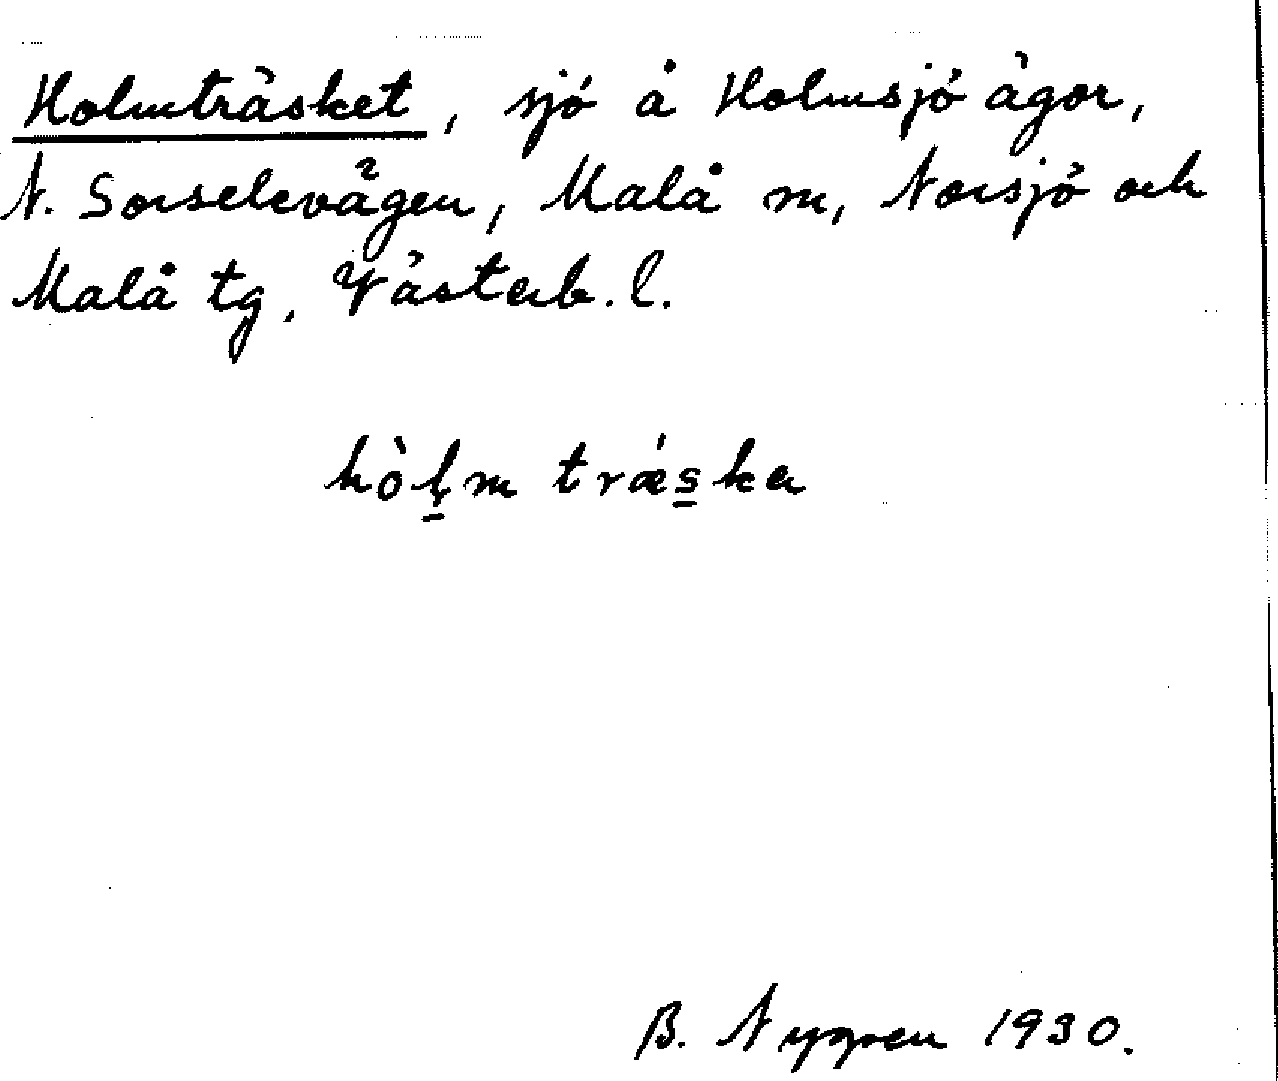 Holmträsket, sjö å Holmsjö ägor,
N. Sorselevägen, Malå sn, Norsjö och
Malå tg. Västerb. l.
hòl̥̱m trǽs̱ka
B. Nygren 1930.